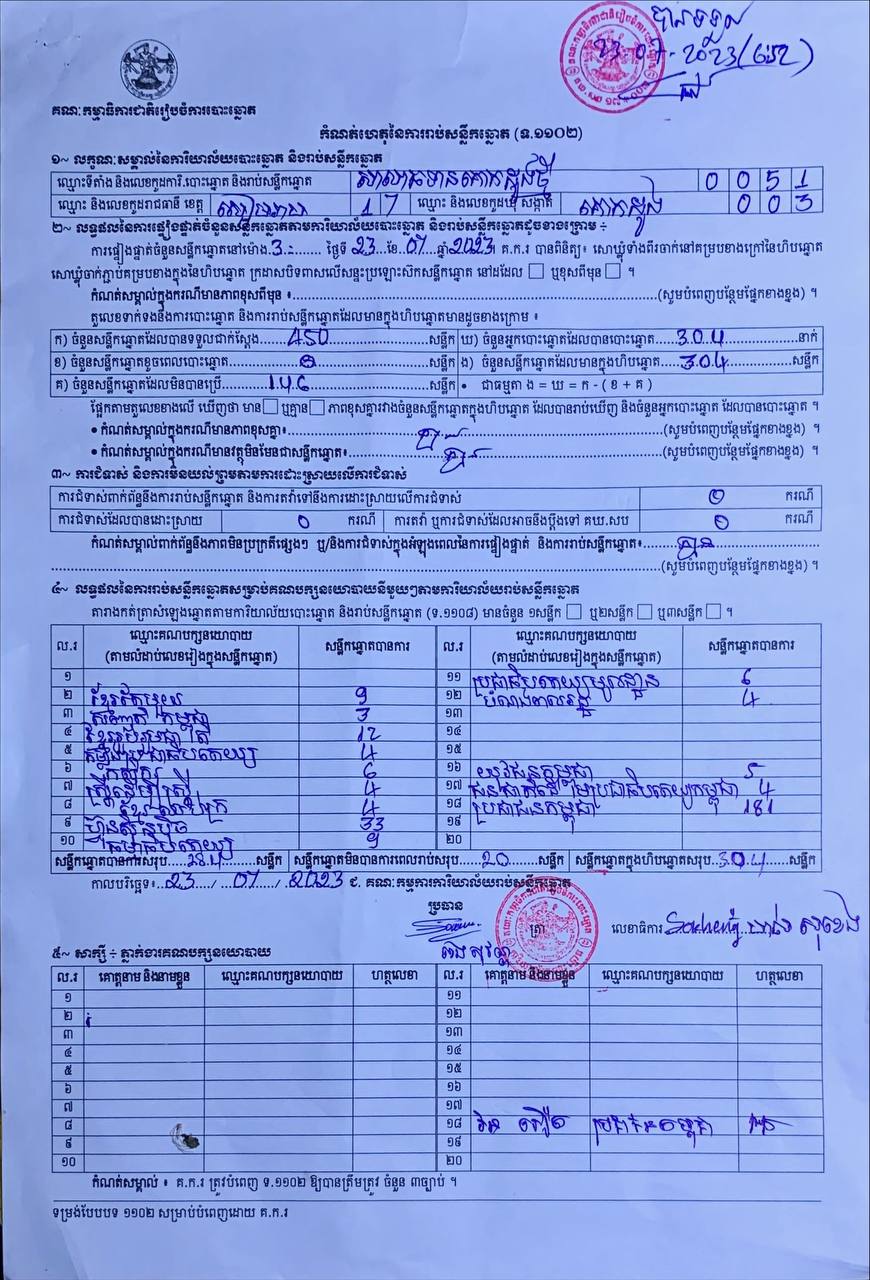 បានទទួល
23-07-2023(
គណៈកម្មាធិការជាតិរៀបចំការបោះឆ្នោត
កំណត់ហេតុនៃការរាប់សន្លឹកឆ្នោត (ទ.១១០២)
១~ លក្ខណៈសម្គាល់នៃការិយាល័យបោះឆ្នោត និងរាប់សន្លឹកឆ្នោត
ឈ្មោះទីតាំង និងលេខកូដការិ.បោះឆ្នោត និងរាប់សន្លឹកឆ្នោត 0 0 5 1
ឈ្មោះ និងលេខកូដរាជធានី ខេត្ត សៀមរាប 17 ឈ្មោះ និងលេខកូដឃុំ សង្កាត់ គោកដូង 0 0 3
២~ លទ្ធផលនៃការផ្ទៀងផ្ទាត់ចំនួនសន្លឹកឆ្នោតតាមការិយាល័យបោះឆ្នោត និងរាប់សន្លឹកឆ្នោតដូចខាងក្រោម ÷
ការផ្ទៀងផ្ទាត់ចំនួនសន្លឹកឆ្នោតនៅម៉ោង 3 ថ្ងៃទី 23 ខែ 07 ឆ្នាំ 2023 គ.ក.រ បានពិនិត្យ៖ សោឃ្លុំទាំងពីរចាក់នៅគម្របខាងក្រៅនៃហិបឆ្នោត
សោឃ្លុំចាក់ភ្ជាប់គម្របខាងក្នុងនៃហិបឆ្នោត ក្រដាសបិទពាសលើសន្ទះប្រឡោះសិកសន្លឹកឆ្នោត នៅដដែល ☐ ឬខុសពីមុន ☐ ។
កំណត់សម្គាល់ក្នុងករណីមានភាពខុសពីមុន ៖ (សូមបំពេញបន្ថែមផ្នែកខាងខ្នង) ។
តួលេខទាក់ទងនឹងការបោះឆ្នោត និងការរាប់សន្លឹកឆ្នោតដែលមានក្នុងហិបឆ្នោតមានដូចខាងក្រោម ៖
ក) ចំនួនសន្លឹកឆ្នោតដែលបានទទួលជាក់ស្តែង 450 សន្លឹក ឃ) ចំនួនអ្នកបោះឆ្នោតដែលបានបោះឆ្នោត 304 នាក់
ខ) ចំនួនសន្លឹកឆ្នោតខូចពេលបោះឆ្នោត 0 សន្លឹក ង) ចំនួនសន្លឹកឆ្នោតដែលមានក្នុងហិបឆ្នោត 304 សន្លឹក
គ) ចំនួនសន្លឹកឆ្នោតដែលមិនបានប្រើ 146 សន្លឹក • ជាធម្មតា ង = ឃ = ក - ( ខ + គ )
ផ្អែកតាមតួលេខខាងលើ ឃើញថា មាន ☐ ឬគ្មាន ☐ ភាពខុសគ្នារវាងចំនួនសន្លឹកឆ្នោតក្នុងហិបឆ្នោត ដែលបានរាប់ឃើញ និងចំនួនអ្នកបោះឆ្នោត ដែលបានបោះឆ្នោត ។
• កំណត់សម្គាល់ក្នុងករណីមានភាពខុសគ្នា៖ គ្មាន (សូមបំពេញបន្ថែមផ្នែកខាងខ្នង) ។
• កំណត់សម្គាល់ក្នុងករណីមានវត្ថុមិនមែនជាសន្លឹកឆ្នោត៖ គ្មាន (សូមបំពេញបន្ថែមផ្នែកខាងខ្នង) ។
៣~ ការជំទាស់ និងការមិនយល់ព្រមតាមការដោះស្រាយលើការជំទាស់
ការជំទាស់ពាក់ព័ន្ធនឹងការរាប់សន្លឹកឆ្នោត និងការតវ៉ាទៅនឹងការដោះស្រាយលើការជំទាស់ 0 ករណី
ការជំទាស់ដែលបានដោះស្រាយ 0 ករណី ការតវ៉ា ឬការជំទាស់ដែលអាចនឹងប្តឹងទៅ គឃ.សប 0 ករណី
កំណត់សម្គាល់ពាក់ព័ន្ធនឹងភាពមិនប្រក្រតីផ្សេងៗ ឬ/និងការជំទាស់ក្នុងអំឡុងពេលនៃការផ្ទៀងផ្ទាត់ និងការរាប់សន្លឹកឆ្នោត៖ គ្មាន
(សូមបំពេញបន្ថែមផ្នែកខាងខ្នង) ។
៤~ លទ្ធផលនៃការរាប់សន្លឹកឆ្នោតសម្រាប់គណបក្សនយោបាយនីមួយៗតាមការិយាល័យរាប់សន្លឹកឆ្នោត
តារាងកត់ត្រាសំឡេងឆ្នោតតាមការិយាល័យបោះឆ្នោត និងរាប់សន្លឹកឆ្នោត (ទ.១១០៨) មានចំនួន ១សន្លឹក ☐ ឬ២សន្លឹក ☐ ឬ៣សន្លឹក ☐ ។
ល.រ ឈ្មោះគណបក្សនយោបាយ (តាមលំដាប់លេខរៀងក្នុងសន្លឹកឆ្នោត) សន្លឹកឆ្នោតបានការ ល.រ ឈ្មោះគណបក្សនយោបាយ (តាមលំដាប់លេខរៀងក្នុងសន្លឹកឆ្នោត) សន្លឹកឆ្នោតបានការ
១ ១១ ប្រជាធិបតេយ្យមូលដ្ឋាន 6
២ ខ្មែរតែមួយ 9 ១២ 4
៣ កម្ពុជា 3 ១៣
៤ ខ្មែររួបរួមជាតិ 12 ១៤
៥ 4 ១៥
៦ កសិករ 6 ១៦ យុវជនកម្ពុជា 5
៧ ស្ត្រីដើម្បីស្ត្រី 4 ១៧ 4
៨ ខ្មែរ 4 ១៨ ប្រជាជនកម្ពុជា 181
៩ ហ៊្វុនស៊ិនប៉ិច 33 ១៩
១០ ធម្មាធិបតេយ្យ 9 ២០
សន្លឹកឆ្នោតបានការសរុប 284 សន្លឹក សន្លឹកឆ្នោតមិនបានការពេលរាប់សរុប 20 សន្លឹក សន្លឹកឆ្នោតក្នុងហិបឆ្នោតសរុប 304 សន្លឹក
កាលបរិច្ឆេទ៖ 23 / 07 / 2023 ជ. គណៈកម្មការការិយាល័យរាប់សន្លឹកឆ្នោត
ប្រធាន
ត្រា លេខាធិការ
៥~ សាក្សី ÷ ភ្នាក់ងារគណបក្សនយោបាយ
ល.រ គោត្តនាម និងនាមខ្លួន ឈ្មោះគណបក្សនយោបាយ ហត្ថលេខា ល.រ គោត្តនាម និងនាមខ្លួន ឈ្មោះគណបក្សនយោបាយ ហត្ថលេខា
១ ១១
២ ១២
៣ ១៣
៤ ១៤
៥ ១៥
៦ ១៦
៧ ១៧
៨ ១៨ ប្រជាជនកម្ពុជា
៩ ១៩
១០ ២០
កំណត់សម្គាល់ ៖ គ.ក.រ ត្រូវបំពេញ ទ.១១០២ ឱ្យបានត្រឹមត្រូវ ចំនួន ៣ច្បាប់ ។
ទម្រង់បែបបទ ១១០២ សម្រាប់បំពេញដោយ គ.ក.រ